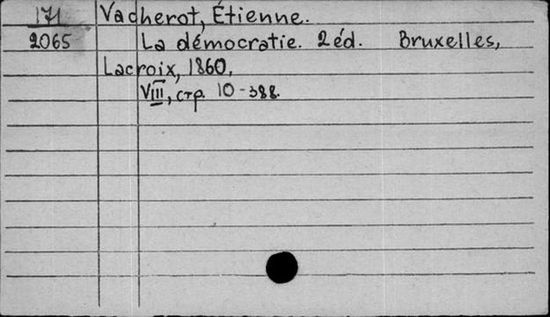 171 Vacherot, Étienne.
2065 La démocratie. 2 éd. Bruxelles,
Lacroix, 1860.
VIII, стр. 10-388.